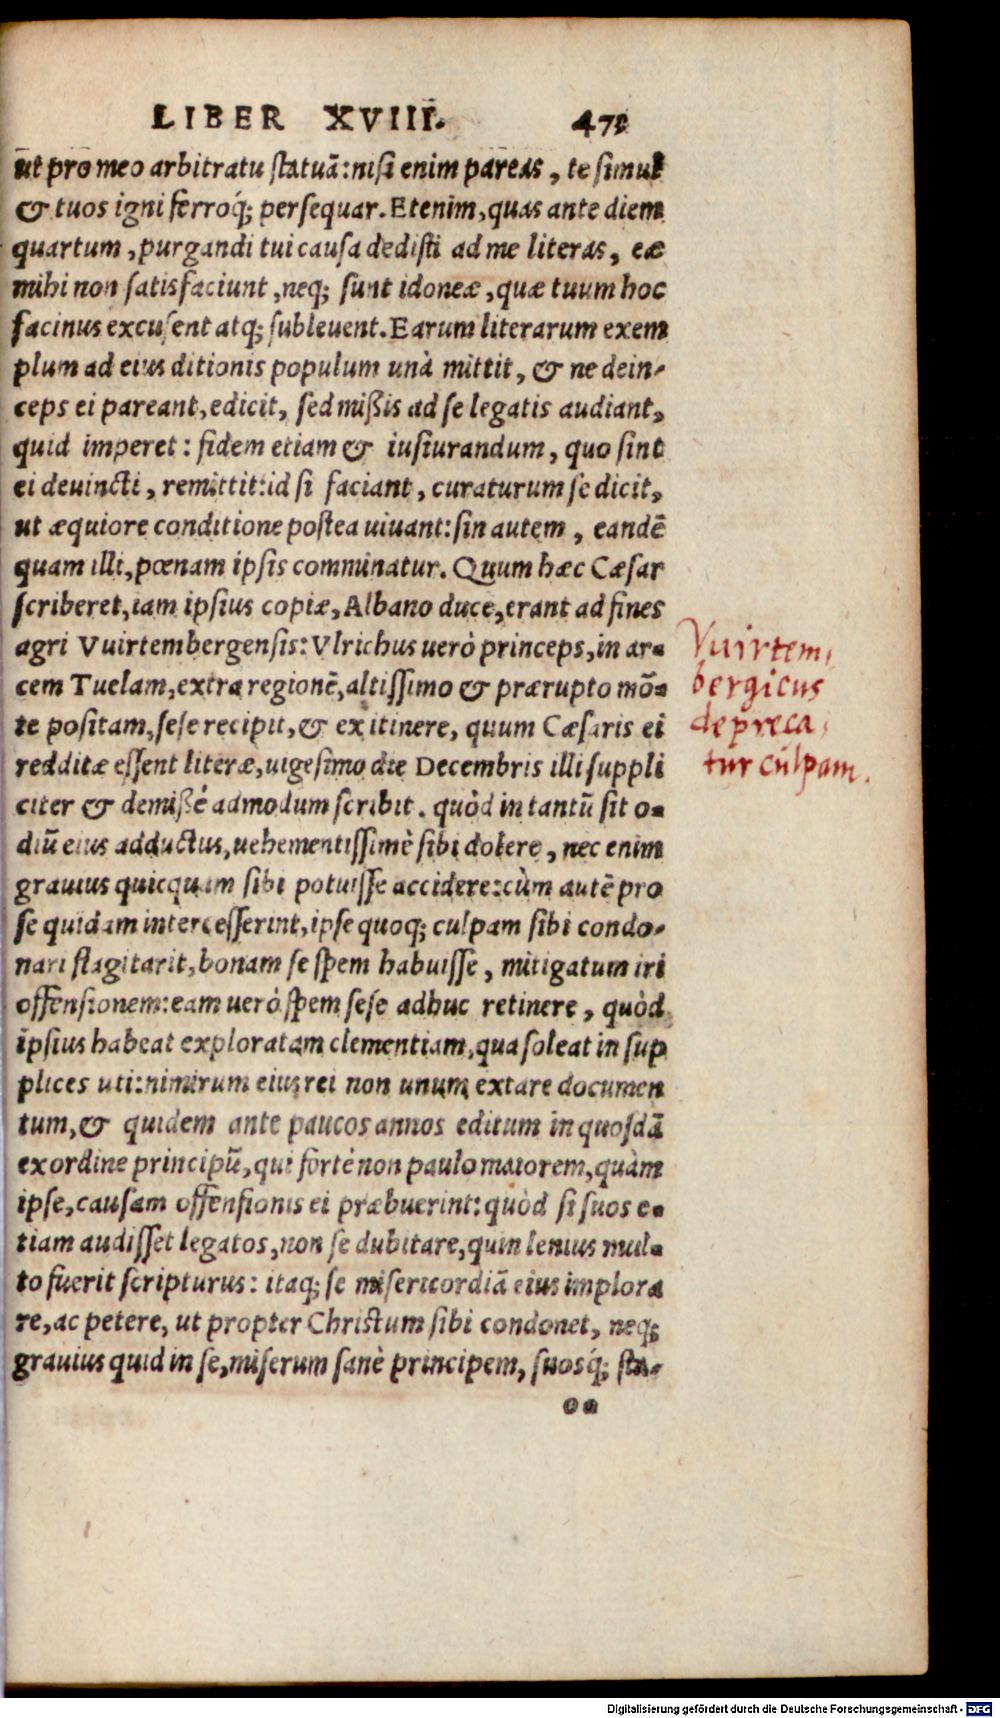 LIBER XVIII. 471
ut pro meo arbitratu statuā: nisi enim pareas, te simul
& tuos igni ferroq́; persequar. Etenim, quas ante diem
quartum, purgandi tui causa dedisti ad me literas, eæ
mihi non satisfaciunt, neq; sunt idoneæ, quæ tuum hoc
facinus excusent atq; subleuent. Earum literarum exem
plum ad eius ditionis populum unà mittit, & ne dein-
ceps ei pareant, edicit, sed mißis ad se legatis audiant,
quid imperet: fidem etiam & iusiurandum, quo sint
ei deuincti, remittit: id si faciant, curaturum se dicit,
ut æquiore conditione postea uiuant: sin autem, eandē
quam illi, pœnam ipsis comminatur. Quum hæc Cæsar
scriberet, iam ipsius copiæ, Albano duce, erant ad fines
agri Vuirtembergensis: Vlrichus uerò princeps, in ar-
cem Tuelam, extra regionē, altissimo & prærupto mō-
te positam, sese recipit, & ex itinere, quum Cæsaris ei
redditæ essent literæ, uigesimo die Decembris illi suppli
citer & demißè admodum scribit. quòd in tantū sit o-
diū eius adductus, uehementissimè sibi dolere, nec enim
grauius quicquam sibi potuisse accidere: cùm autē pro
se quidam intercesserint, ipse quoq; culpam sibi condo-
nari flagitarit, bonam se spem habuisse, mitigatum iri
offensionem: eam uerò spem sese adhuc retinere, quòd
ipsius habeat exploratam clementiam, qua soleat in sup
plices uti: nimirum eius rei non unum extare documen
tum, & quidem ante paucos annos editum in quosdā
ex ordine principū, qui fortè non paulo maiorem, quàm
ipse, causam offensionis ei præbuerint: quòd si suos e-
tiam audisset legatos, non se dubitare, quin lenius mul-
to fuerit scripturus: itaq; se misericordiā eius implora
re, ac petere, ut propter Christum sibi condonet, neq;
grauius quid in se, miserum sanè principem, suosq́; sta-
oo
Vuirtem,
bergicus
depreca,
tur culpam.
Digitalisierung gefördert durch die Deutsche Forschungsgemeinschaft - DFG